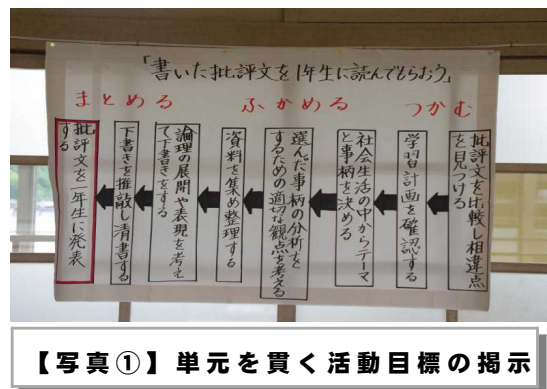 「書いた批評文を1年生に読んでもらおう」
つかむ
ふかめる
まとめる
批評文を比較し相違点
を見つける
学習計画を確認する
社会生活の中からテーマ
と事柄を決める
選んだ事柄の分析を
するための適切な観点を考える
資料を集め整理する
論理の展開や表現を考え
て下書きをする
下書きを推敲し清書する
批評文を一年生に発表
する
【写真①】単元を貫く活動目標の掲示